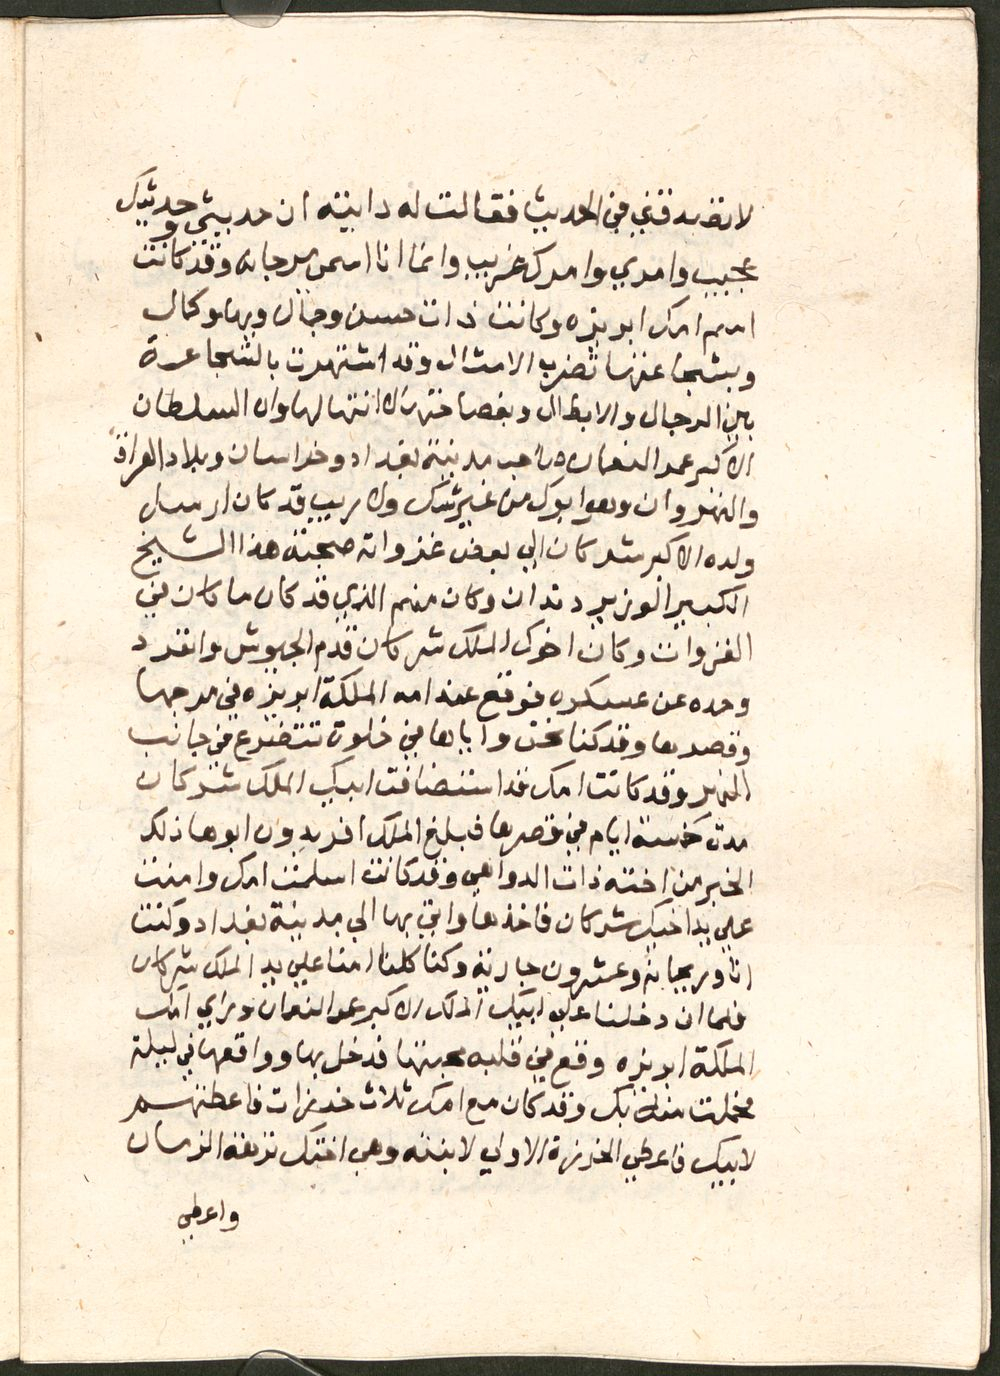 لا تصدقني في الحديث فقالت له دايته ان حديثي وحديثك
عجيب وامري وامرك غريب وانما انا اسمي مرجانه وقد كانت
اسم امك ابريزه وكانت ذات حسن وجمال وبها وكمال
وبشجاعتها تضرب الامثال وقد اشتهرت بالشجاعة
بين الرجال والابطال وبفصاحتها لا انتها لها وان السلطان
الاكبر عمر النعمان صاحب مدينة بغداد وخراسان وبلاد العراق
والنهروان وهو ابوك من غير شك ولا ريب قد كان ارسل
ولده الاكبر شركان الي بعض غزواته صحبته هذا الشيخ
الكبير الوزير دندان وكان منهم الذي قد كان ما كان في
الغزوات وكان اخوك الملك شركان قدم الجيوش وانفرد
وحده عن عسكره فوقع عند امك الملكة ابريزه في مرجها
وقصرها وقد كنا نحن واياها في خلوة نتضرع في جانب
النهر وقد كانت امك قد استضافت اخيك الملك شركان
مدة خمسة ايام في قصرها فبلغ الملك افريدون ابوها ذلك
الخبر من اخته ذات الدواهي وقد كانت اسلمت امك وامنت
علي يد اخيك شركان فاخذها واتي بها الي مدينة بغداد وكنت
انا وريحانة وعشرون جارية وكنا كلنا امنا علي يد الملك شركان
فلما ان دخلنا علي ابيك الملك الاكبر عمر النعمان وراي امك
الملكة ابريزه وقع في قلبه محبتها فدخل بها وواقعها في ليلة
فحملت منه بك وقد كان مع امك ثلاث خرزات فاعطتهم
لابيك فاعطي الخرزة الاولي لابنته وهي اختك نزهة الزمان
واعطي